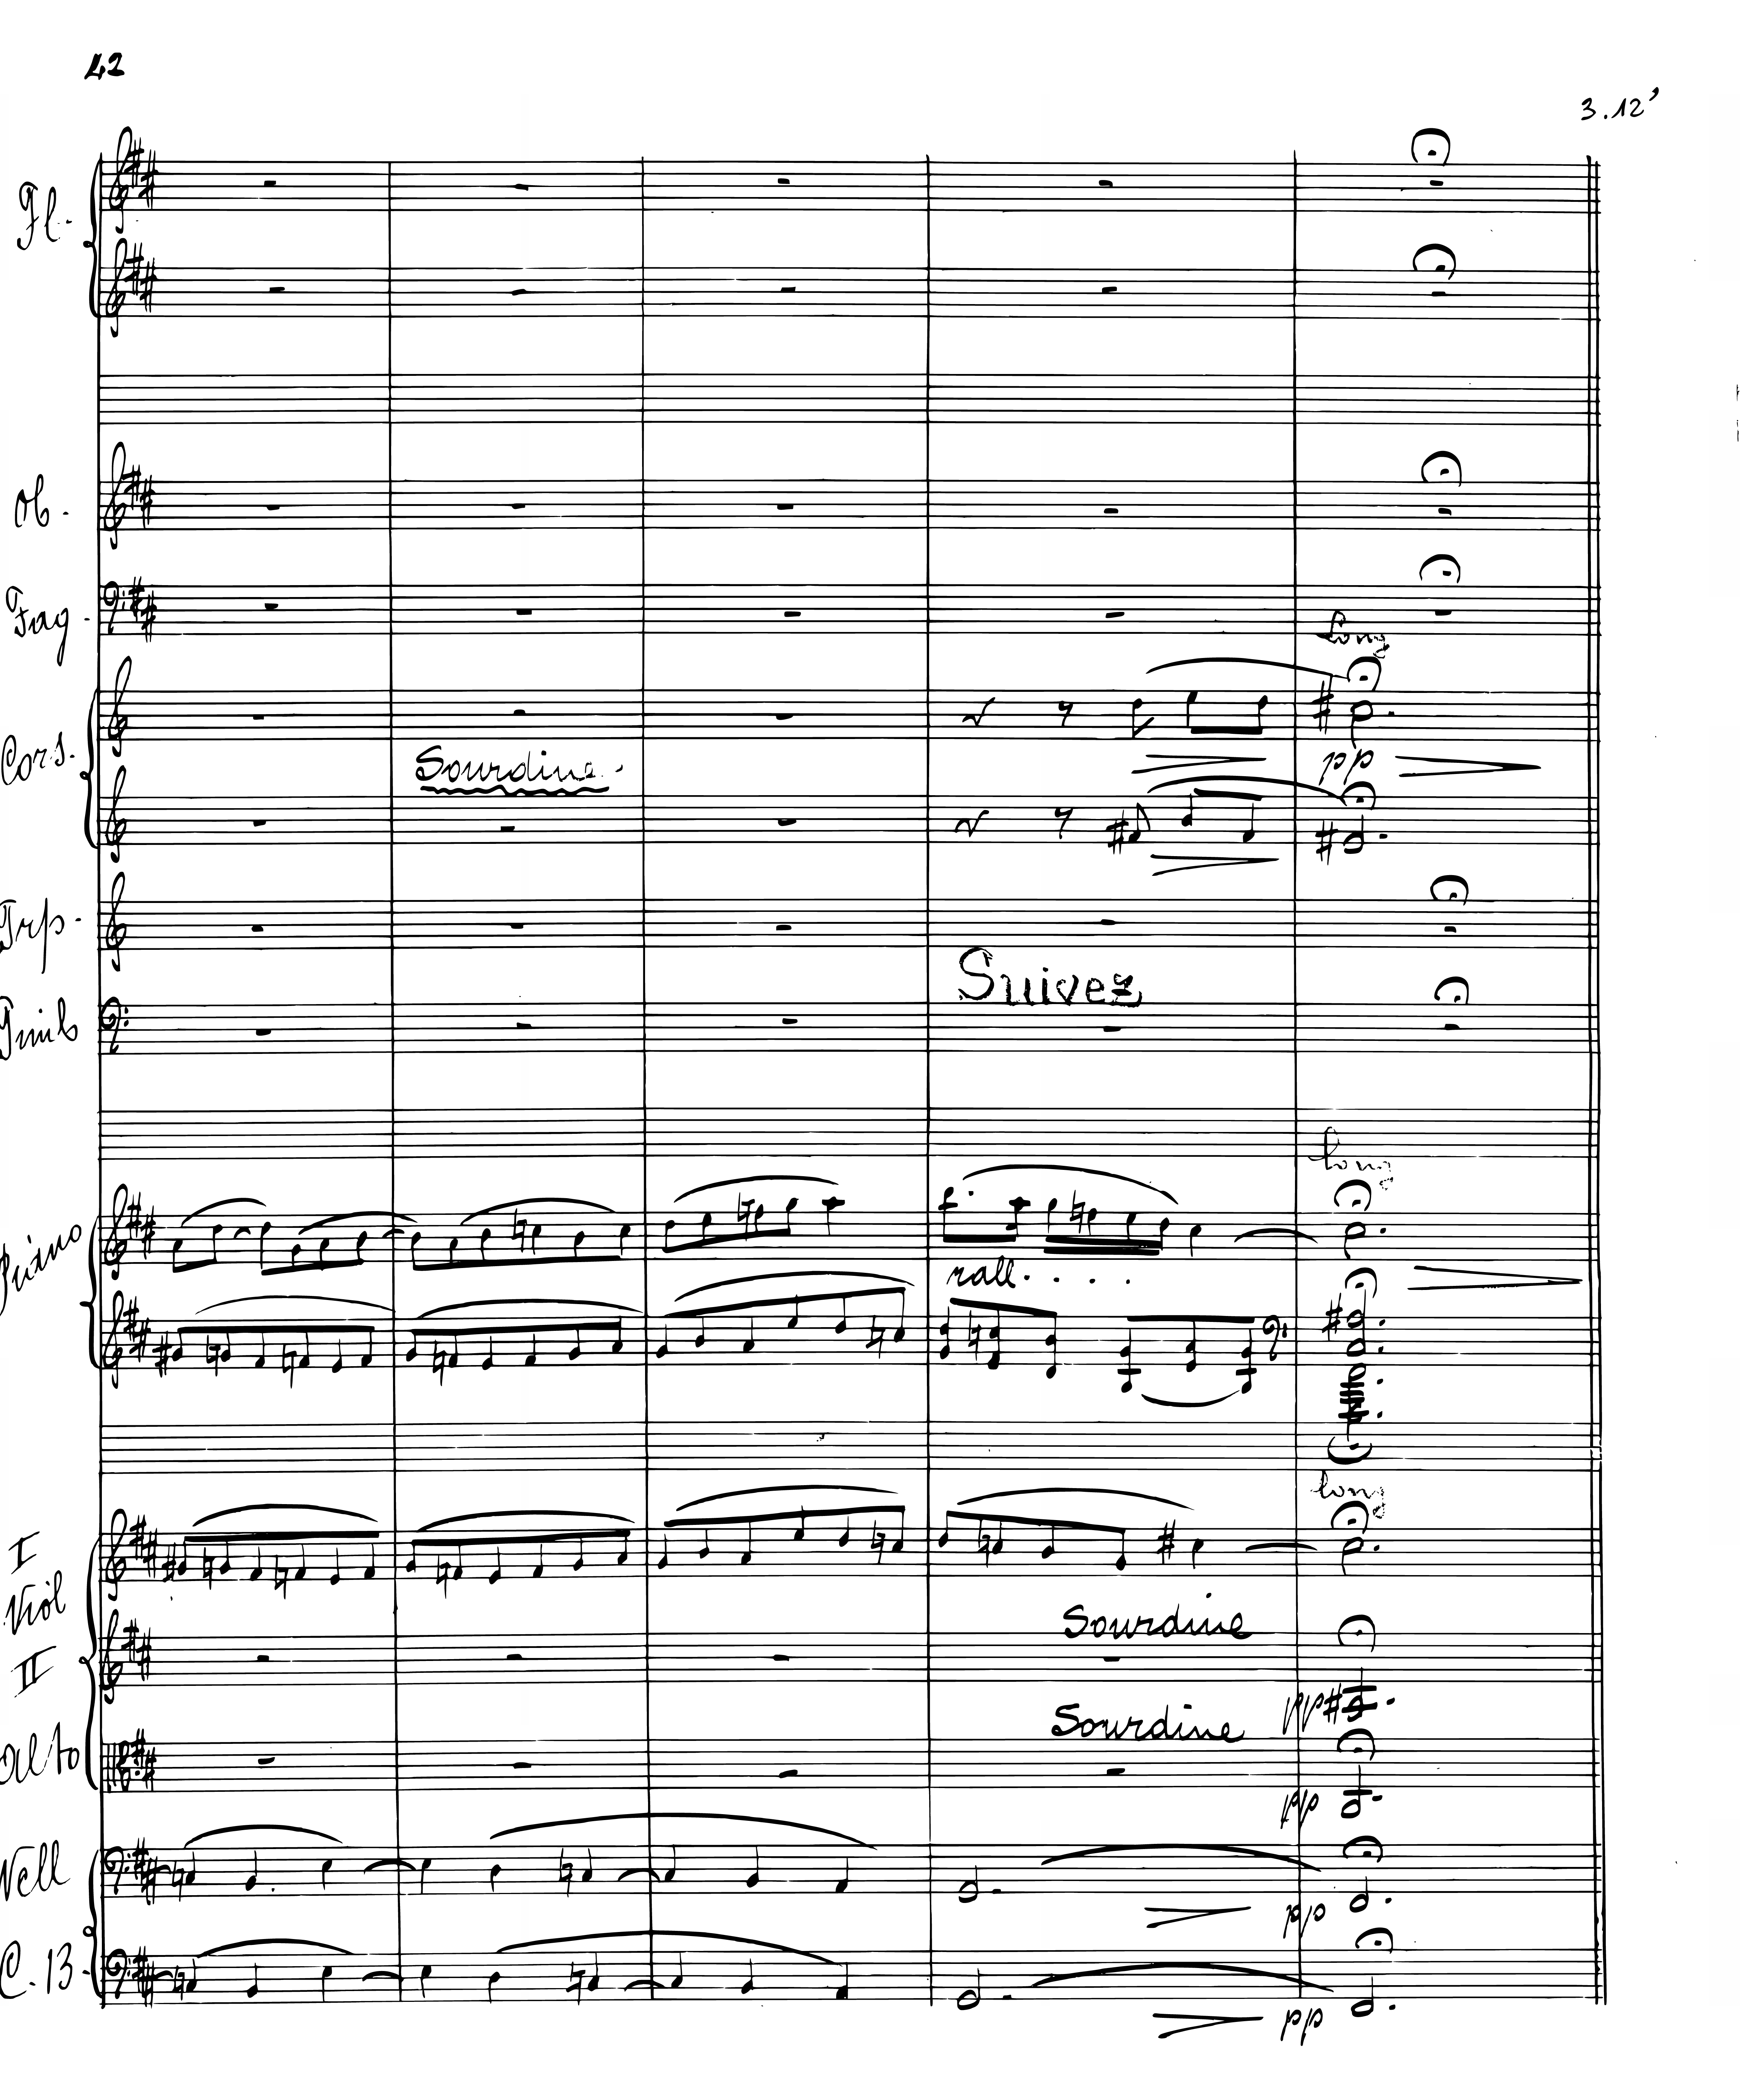 42
3.12'
Fl.
Ob.
Fag.
Long
Cors.
pp
Sourdine.
Trp.
Suivez
Timb
long
Piano
rall. . . .
long
I
Viol
Sourdine
II
pp
Sourdine
alto
pp
Vcll
pp
C.B.
pp